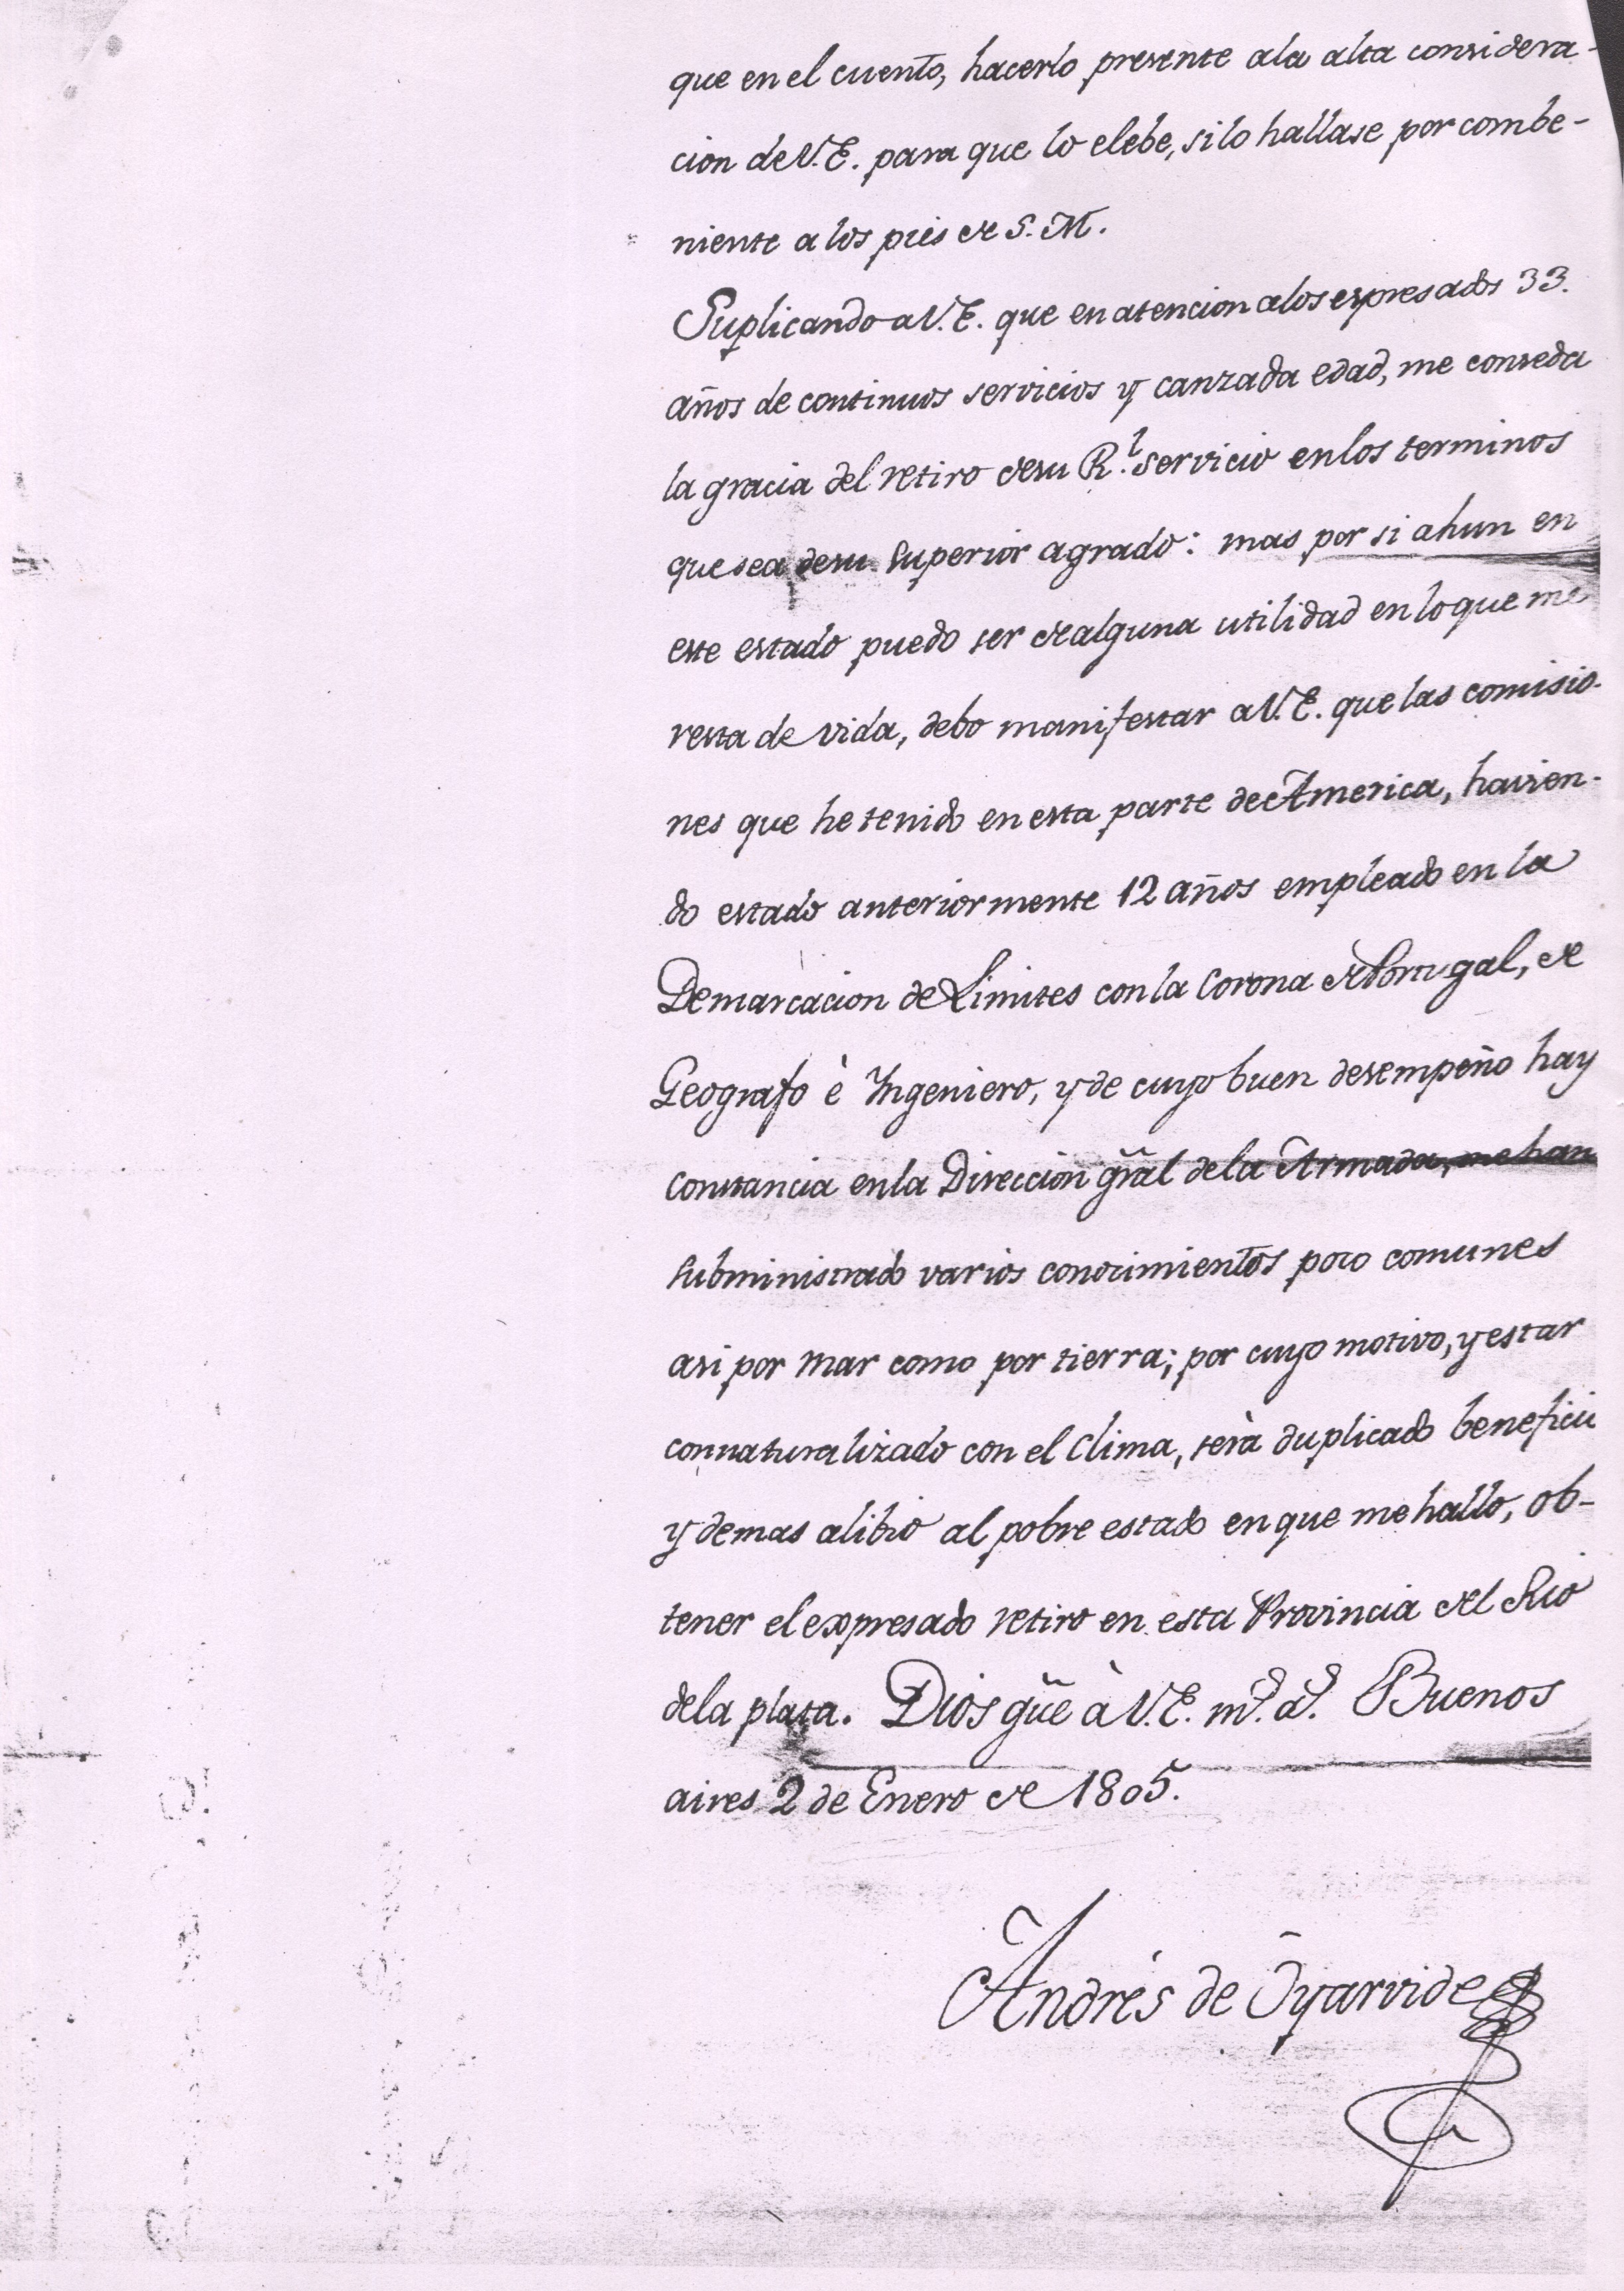 que en el cuento, hacerlo presente ala alta considera-
cion de V.E. para que lo elebe, si lo hallase por combe-
niente a los pies de S.M.
Suplicando a V.E. que en atencion a los expresados 33.
años de continuos servicios y canzada edad, me conseda
la gracia del retiro de su R.l servicio en los terminos
que sea de su Superior agrado: mas por si ahun en
este estado puedo ser de alguna utilidad en lo que me
resta de vida, debo manifestar a V.E. que las comisio-
nes que he tenido en esta parte de America, havien-
do estado anteriormente 12 años empleado en la
Demarcacion de Limites con la Corona de Portugal, de
Geografo è Ingeniero, y de cuyo buen desempeño hay
constancia en la Direccion gral de la Armada, me han
subministrado varios conocimientos poco comunes
asi por mar como por tierra; por cuyo motivo, y estar
connaturalizado con el Clima, serà duplicado beneficio
y demas alibio al pobre estado en que me hallo, ob-
tener el expresado retiro en esta Provincia del Rio
de la plata. Dios güe à V.E. m.s a.s Buenos
aires 2 de Enero de 1805.
Andrés de Oyarvide